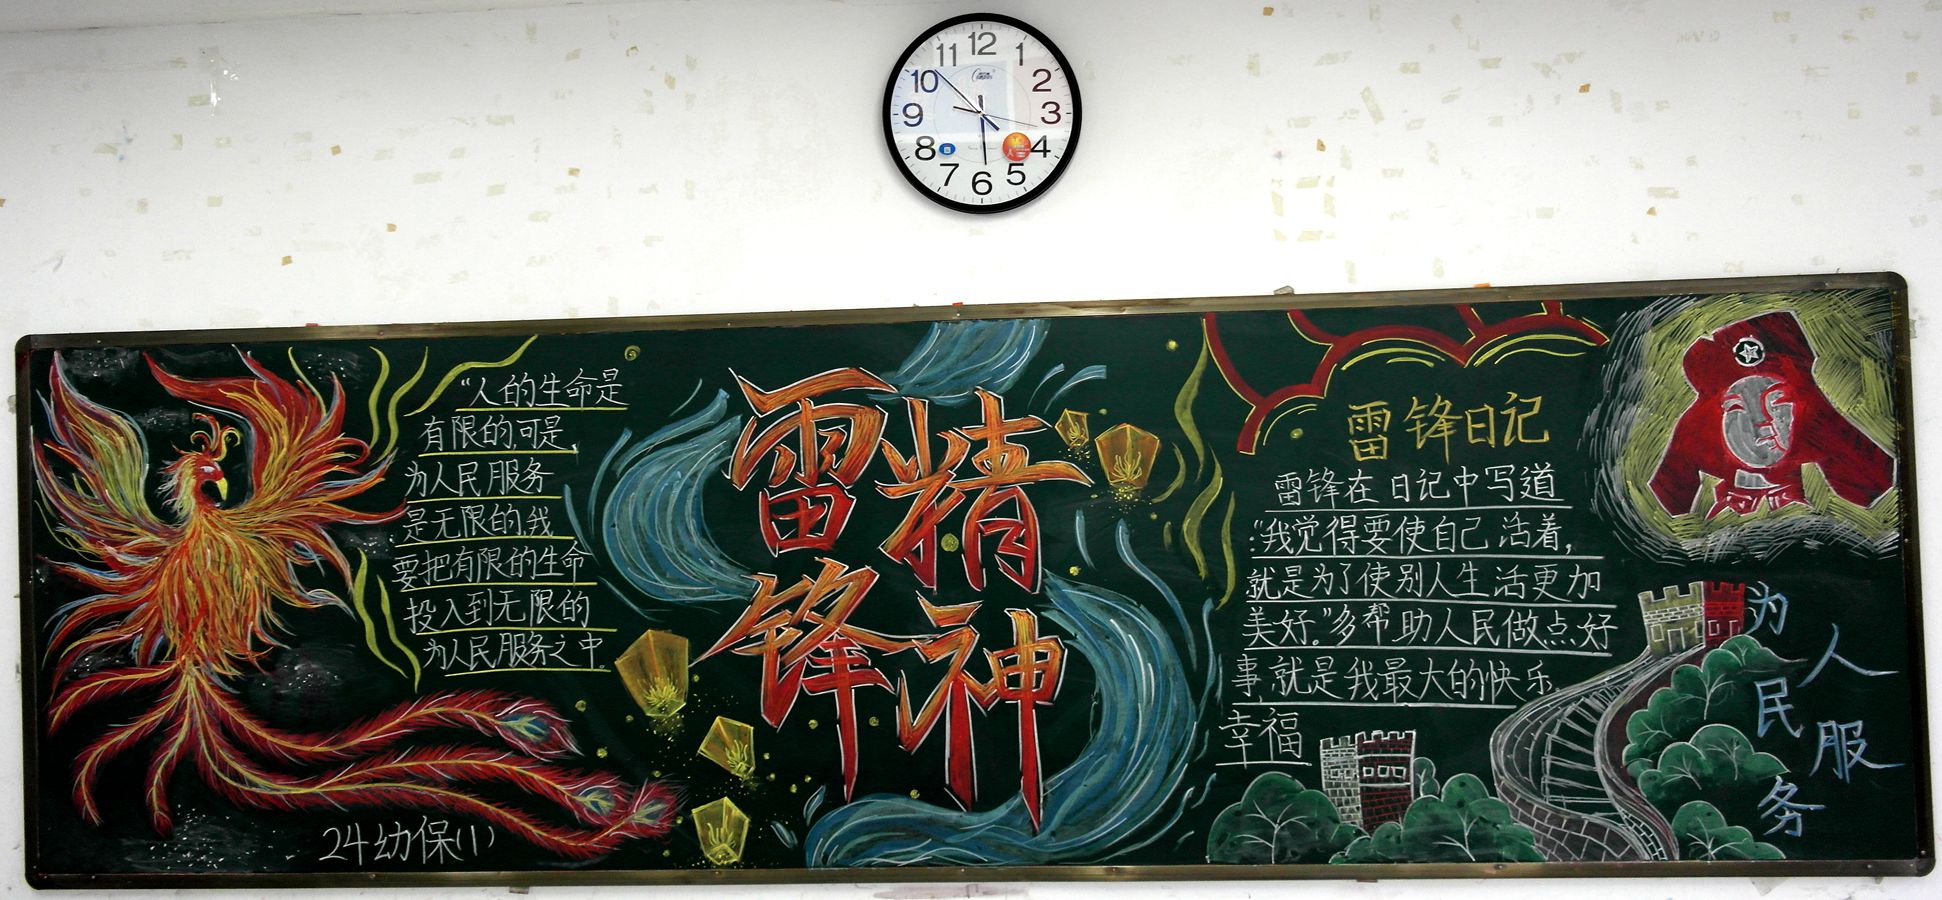 12
1
2
3
4
5
6
7
8
9
10
11
"人的生命是
有限的,可是,
为人民服务
是无限的,我
要把有限的生命
投入到无限的
为人民服务之中。
24幼保(1)
雷精
锋神
雷锋日记
雷锋在日记中写道
:"我觉得要使自己活着,
就是为了使别人生活更加
美好。"多帮助人民做点好
事,就是我最大的快乐、
幸福
为人民服务